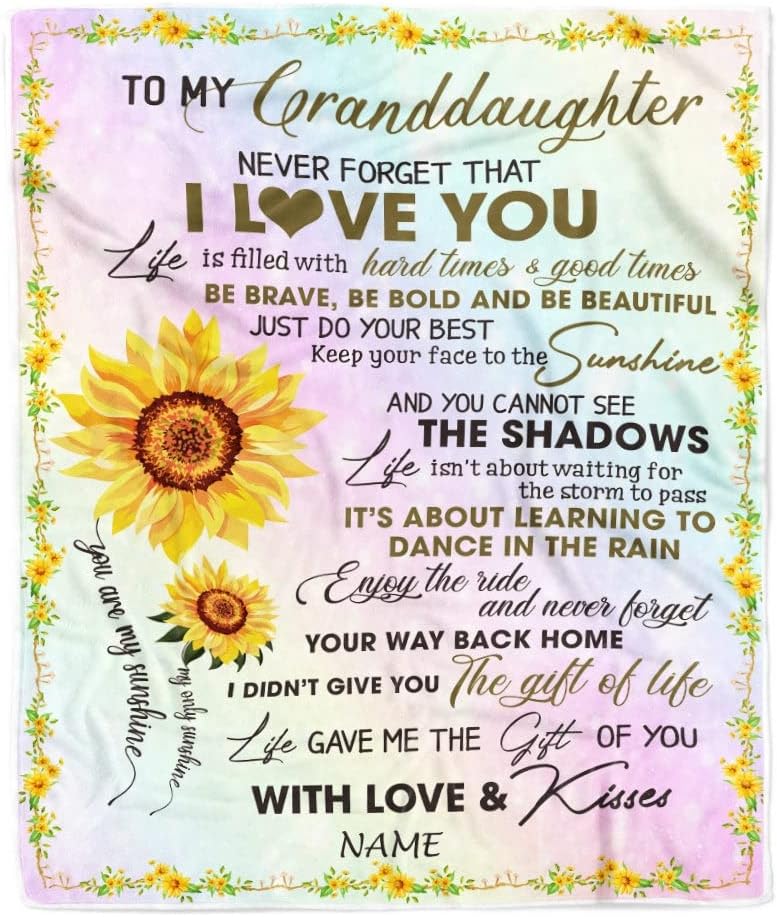 TO MY Granddaughter
NEVER FORGET THAT
I LOVE YOU
Life is filled with hard times & good times
BE BRAVE, BE BOLD AND BE BEAUTIFUL
JUST DO YOUR BEST
Keep your face to the Sunshine
AND YOU CANNOT SEE
THE SHADOWS
Life isn't about waiting for
the storm to pass
IT'S ABOUT LEARNING TO
DANCE IN THE RAIN
Enjoy the ride
and never forget
YOUR WAY BACK HOME
I DIDN'T GIVE YOU The gift of life
Life GAVE ME THE Gift OF YOU
WITH LOVE & Kisses
NAME
You are my sunshine
my only sunshine